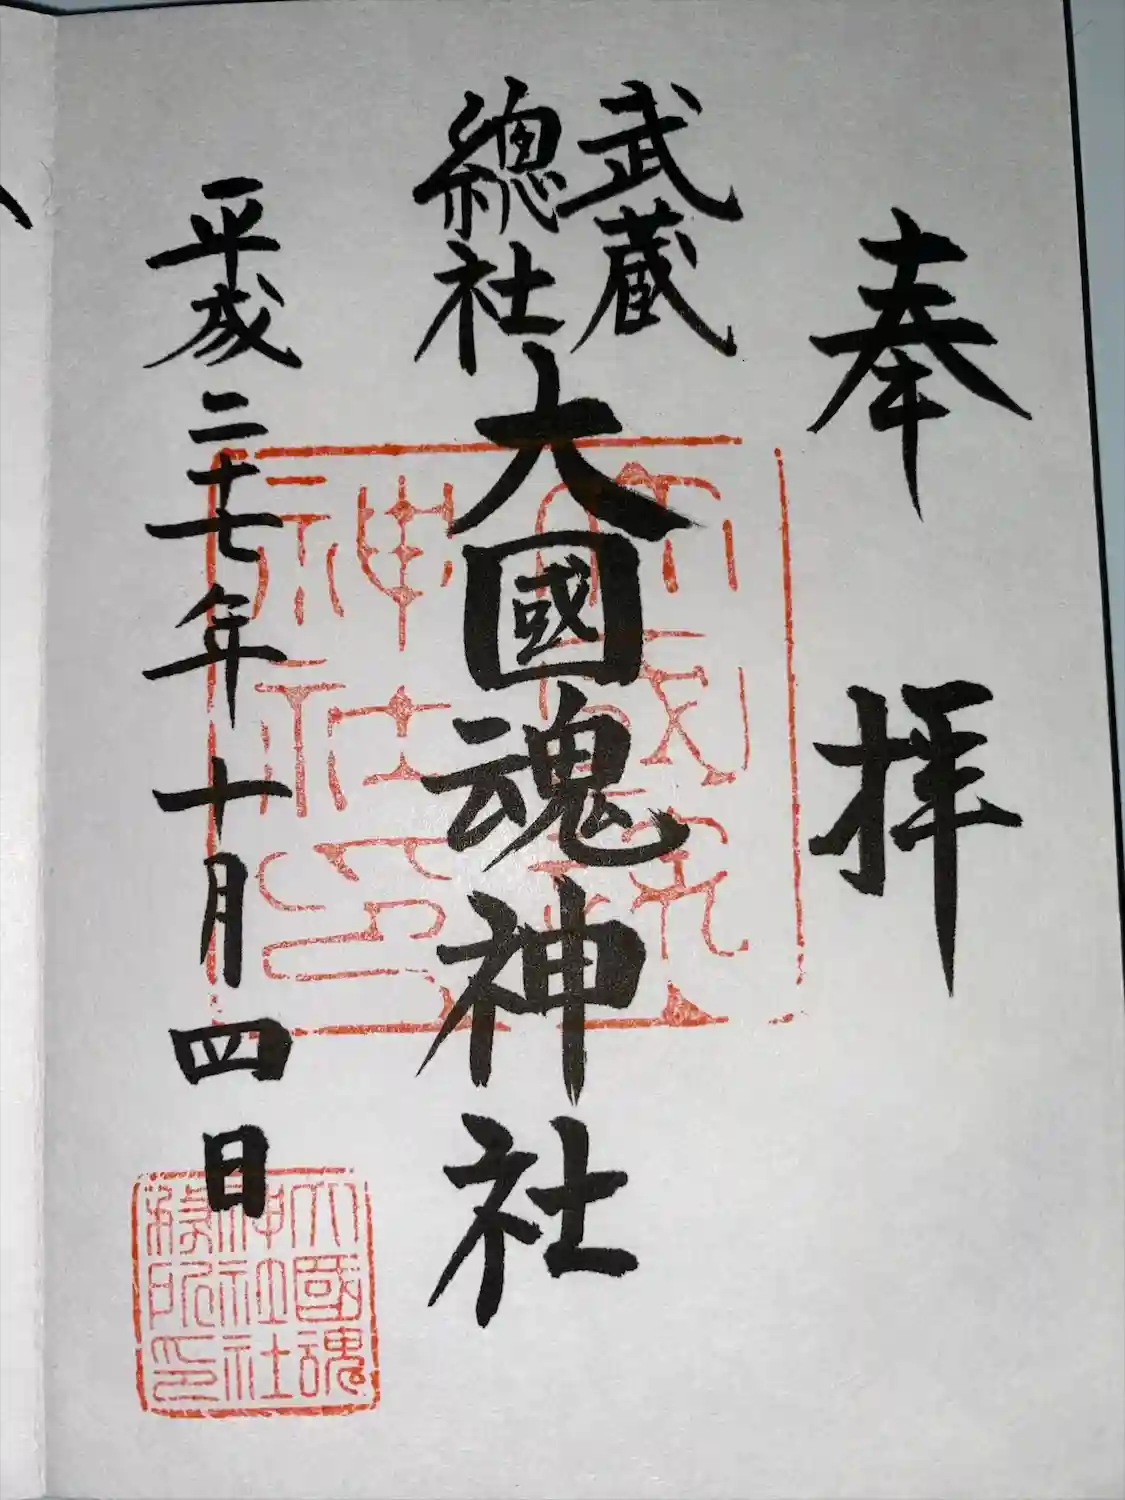 奉拝
武蔵
總社
大國魂神社
平成二十七年十月四日
大國魂
神社社
務所印